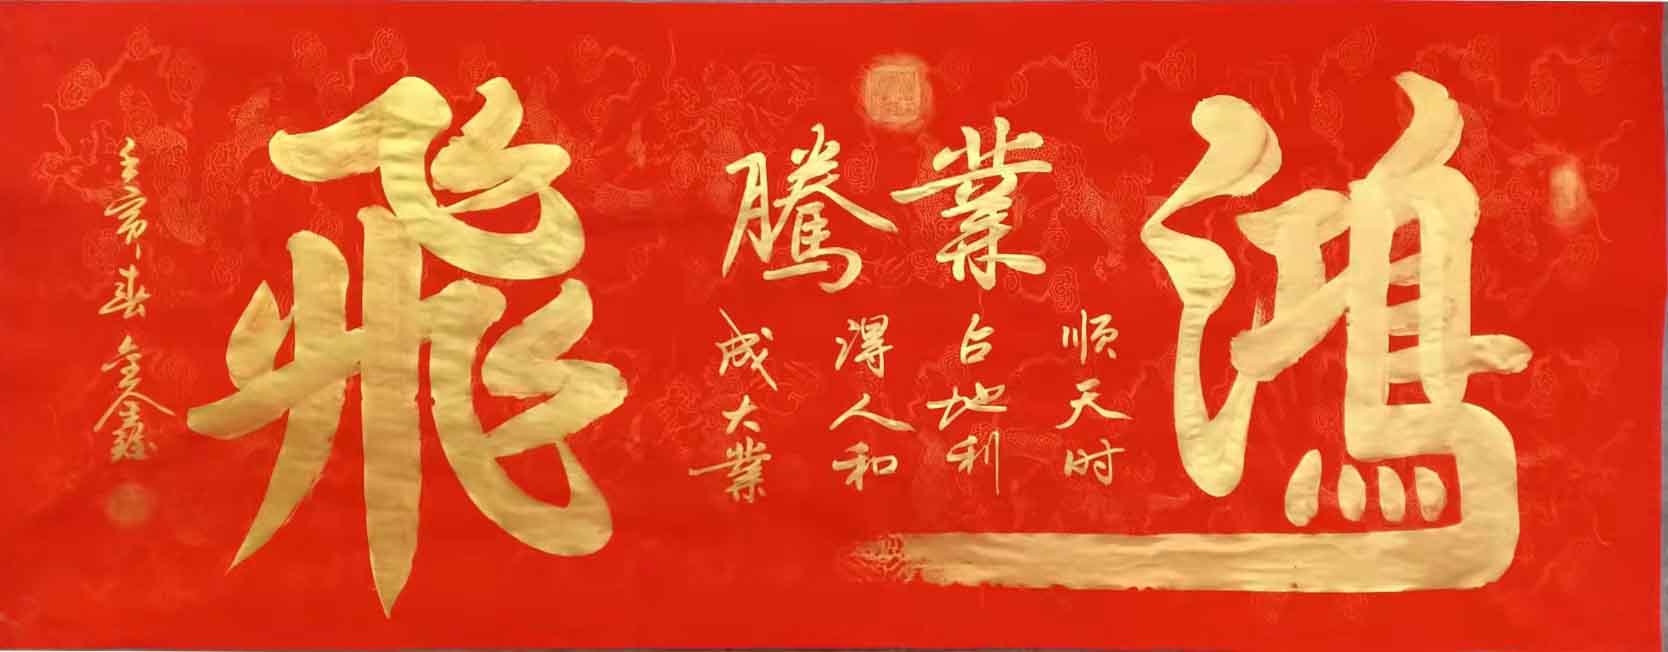 鴻業騰飛
顺天时
占地利
得人和
成大業
壬寅春金鑫